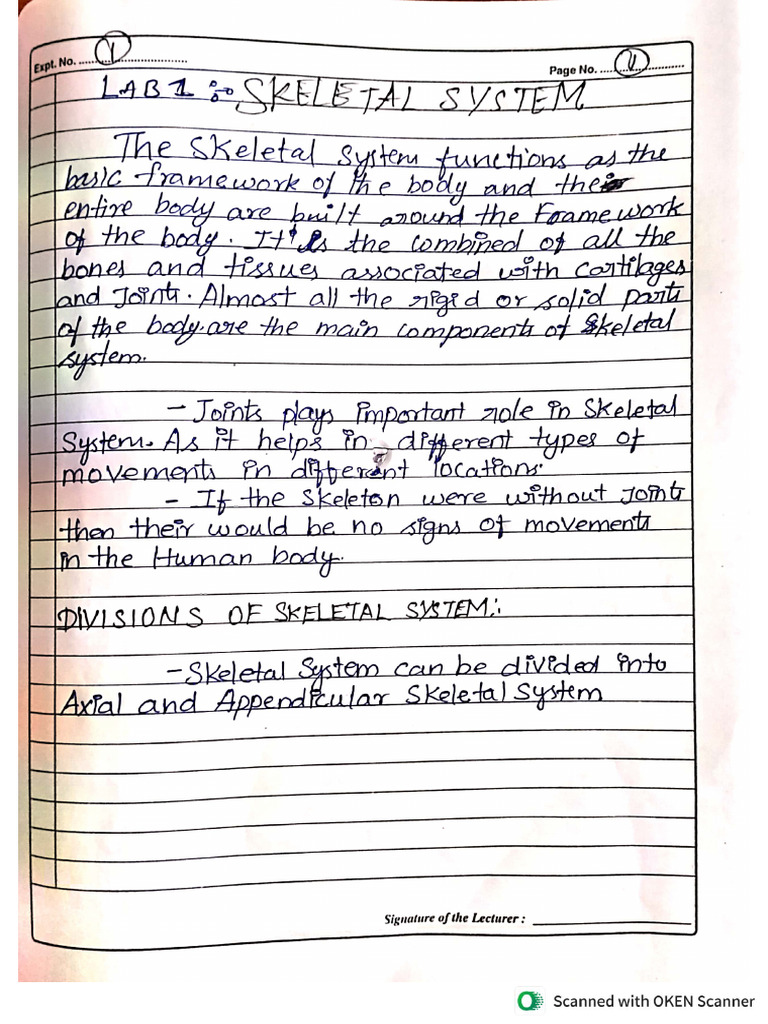 Expt. No. 1
Page No. 4
LAB 1 :- SKELETAL SYSTEM
The Skeletal System functions as the
basic framework of the body and their
entire body are built around the Framework
of the body. It is the combined of all the
bones and tissues associated with cartilages
and Joints. Almost all the rigid or solid parts
of the body are the main components of Skeletal
system.
- Joints plays important role in Skeletal
System. As it helps in different types of
movements in different locations.
- If the Skeleton were without Joints
then their would be no signs of movements
in the Human body.
DIVISIONS OF SKELETAL SYSTEM:
- Skeletal System can be divided into
Axial and Appendicular Skeletal System
Signature of the Lecturer :
Scanned with OKEN Scanner